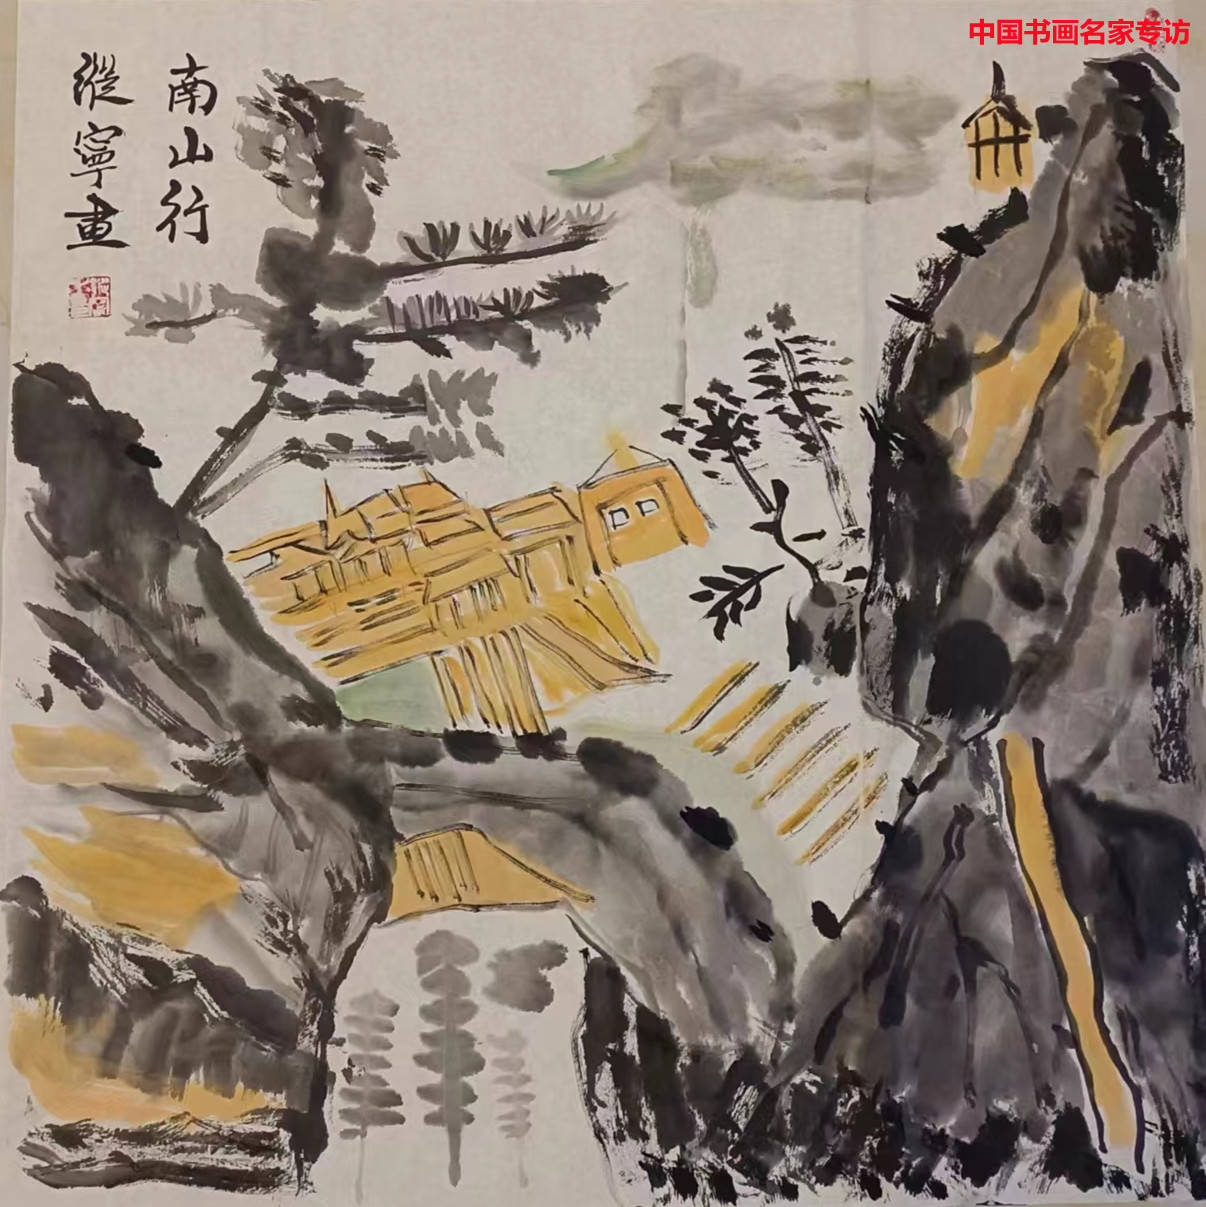 中国书画名家专访
南山行
縱寧畫